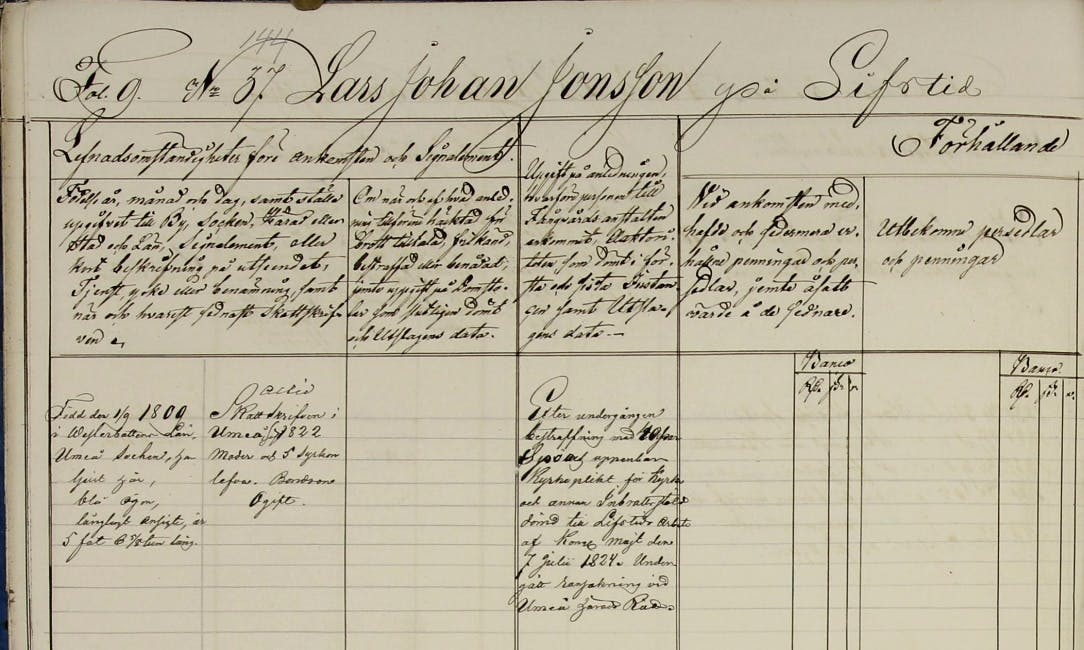 144
Fol. 9. No 37. Lars Johan Jonsson på Lifstid
Lefnadsomständigheter före ankomsten och Signalement.
Födelseår, månad och dag, samt ställe
uppgifvet till By, Socken, Härad eller
Stad och Län, Signalement, eller
kort beskrifning på utseendet,
Tjenst, yrke eller benämning, samt
när och hvarest sednast Skattskrif-
ven
Om när och af hvad anled-
ning tillförene häktad för
brott tilltalad, frikänd,
bestraffad eller benådad,
jemte uppgift på Domsto-
lar som slutligen dömt
och Utslagens data.
Uppgift på anledningen,
hvarföre personen till
Fångvårds anstalten
ankommit, Auktori-
teter, som dömt i för-
sta och sista Instan-
sen samt Utsla-
gens data.
Förhållande
Vid ankomsten med-
hafde och sedermera er-
hållne penningar och per-
sedlar, jemte åsatt
värde å de sednare.
Utbekomne persedlar
och penningar
Banco
Rd. sk. r.
Banco
Rd. sk. r.
Född den 1/9 1800
i Westerbottens Län,
Umeå Socken, ha
ljust hår,
blå ögon,
långlagt ansigte, är
5 fot 6 tum lång.
Skattskrifven i
Umeå 1822
Moder och 5 Syskon
lefva.
Ogift.
Efter undergången
bestraffning med 40 par
Spö och uppenbar
Kyrkoplikt för Kyrko
och annan Inbrotts stöld
dömd till Lifstids Arbete
af Kongl Majt den
7 Julii 1824. Under
gått ransakning vid
Umeå Härads Rätt.